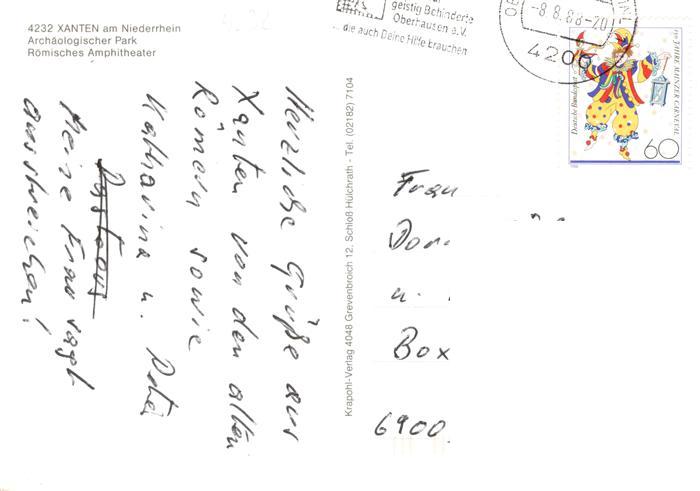 4232 XANTEN am Niederrhein
Archäologischer Park
Römisches Amphitheater
Herzliche Grüße aus
Xanten von den alten
Römern sowie
Katharina u. Peter
Meine Frau sagt
ausstreichen!
Krapohl-Verlag 4048 Grevenbroich 12, Schloß Hülchrath - Tel. (02182) 7104
geistig Behinderte
Oberhausen e.V.
... die auch Deine Hilfe brauchen
-8.8.88-20
4200
Deutsche Bundespost
150 JAHRE MAINZER CARNEVAL
60
Frau
Dor
u.
Box
6900